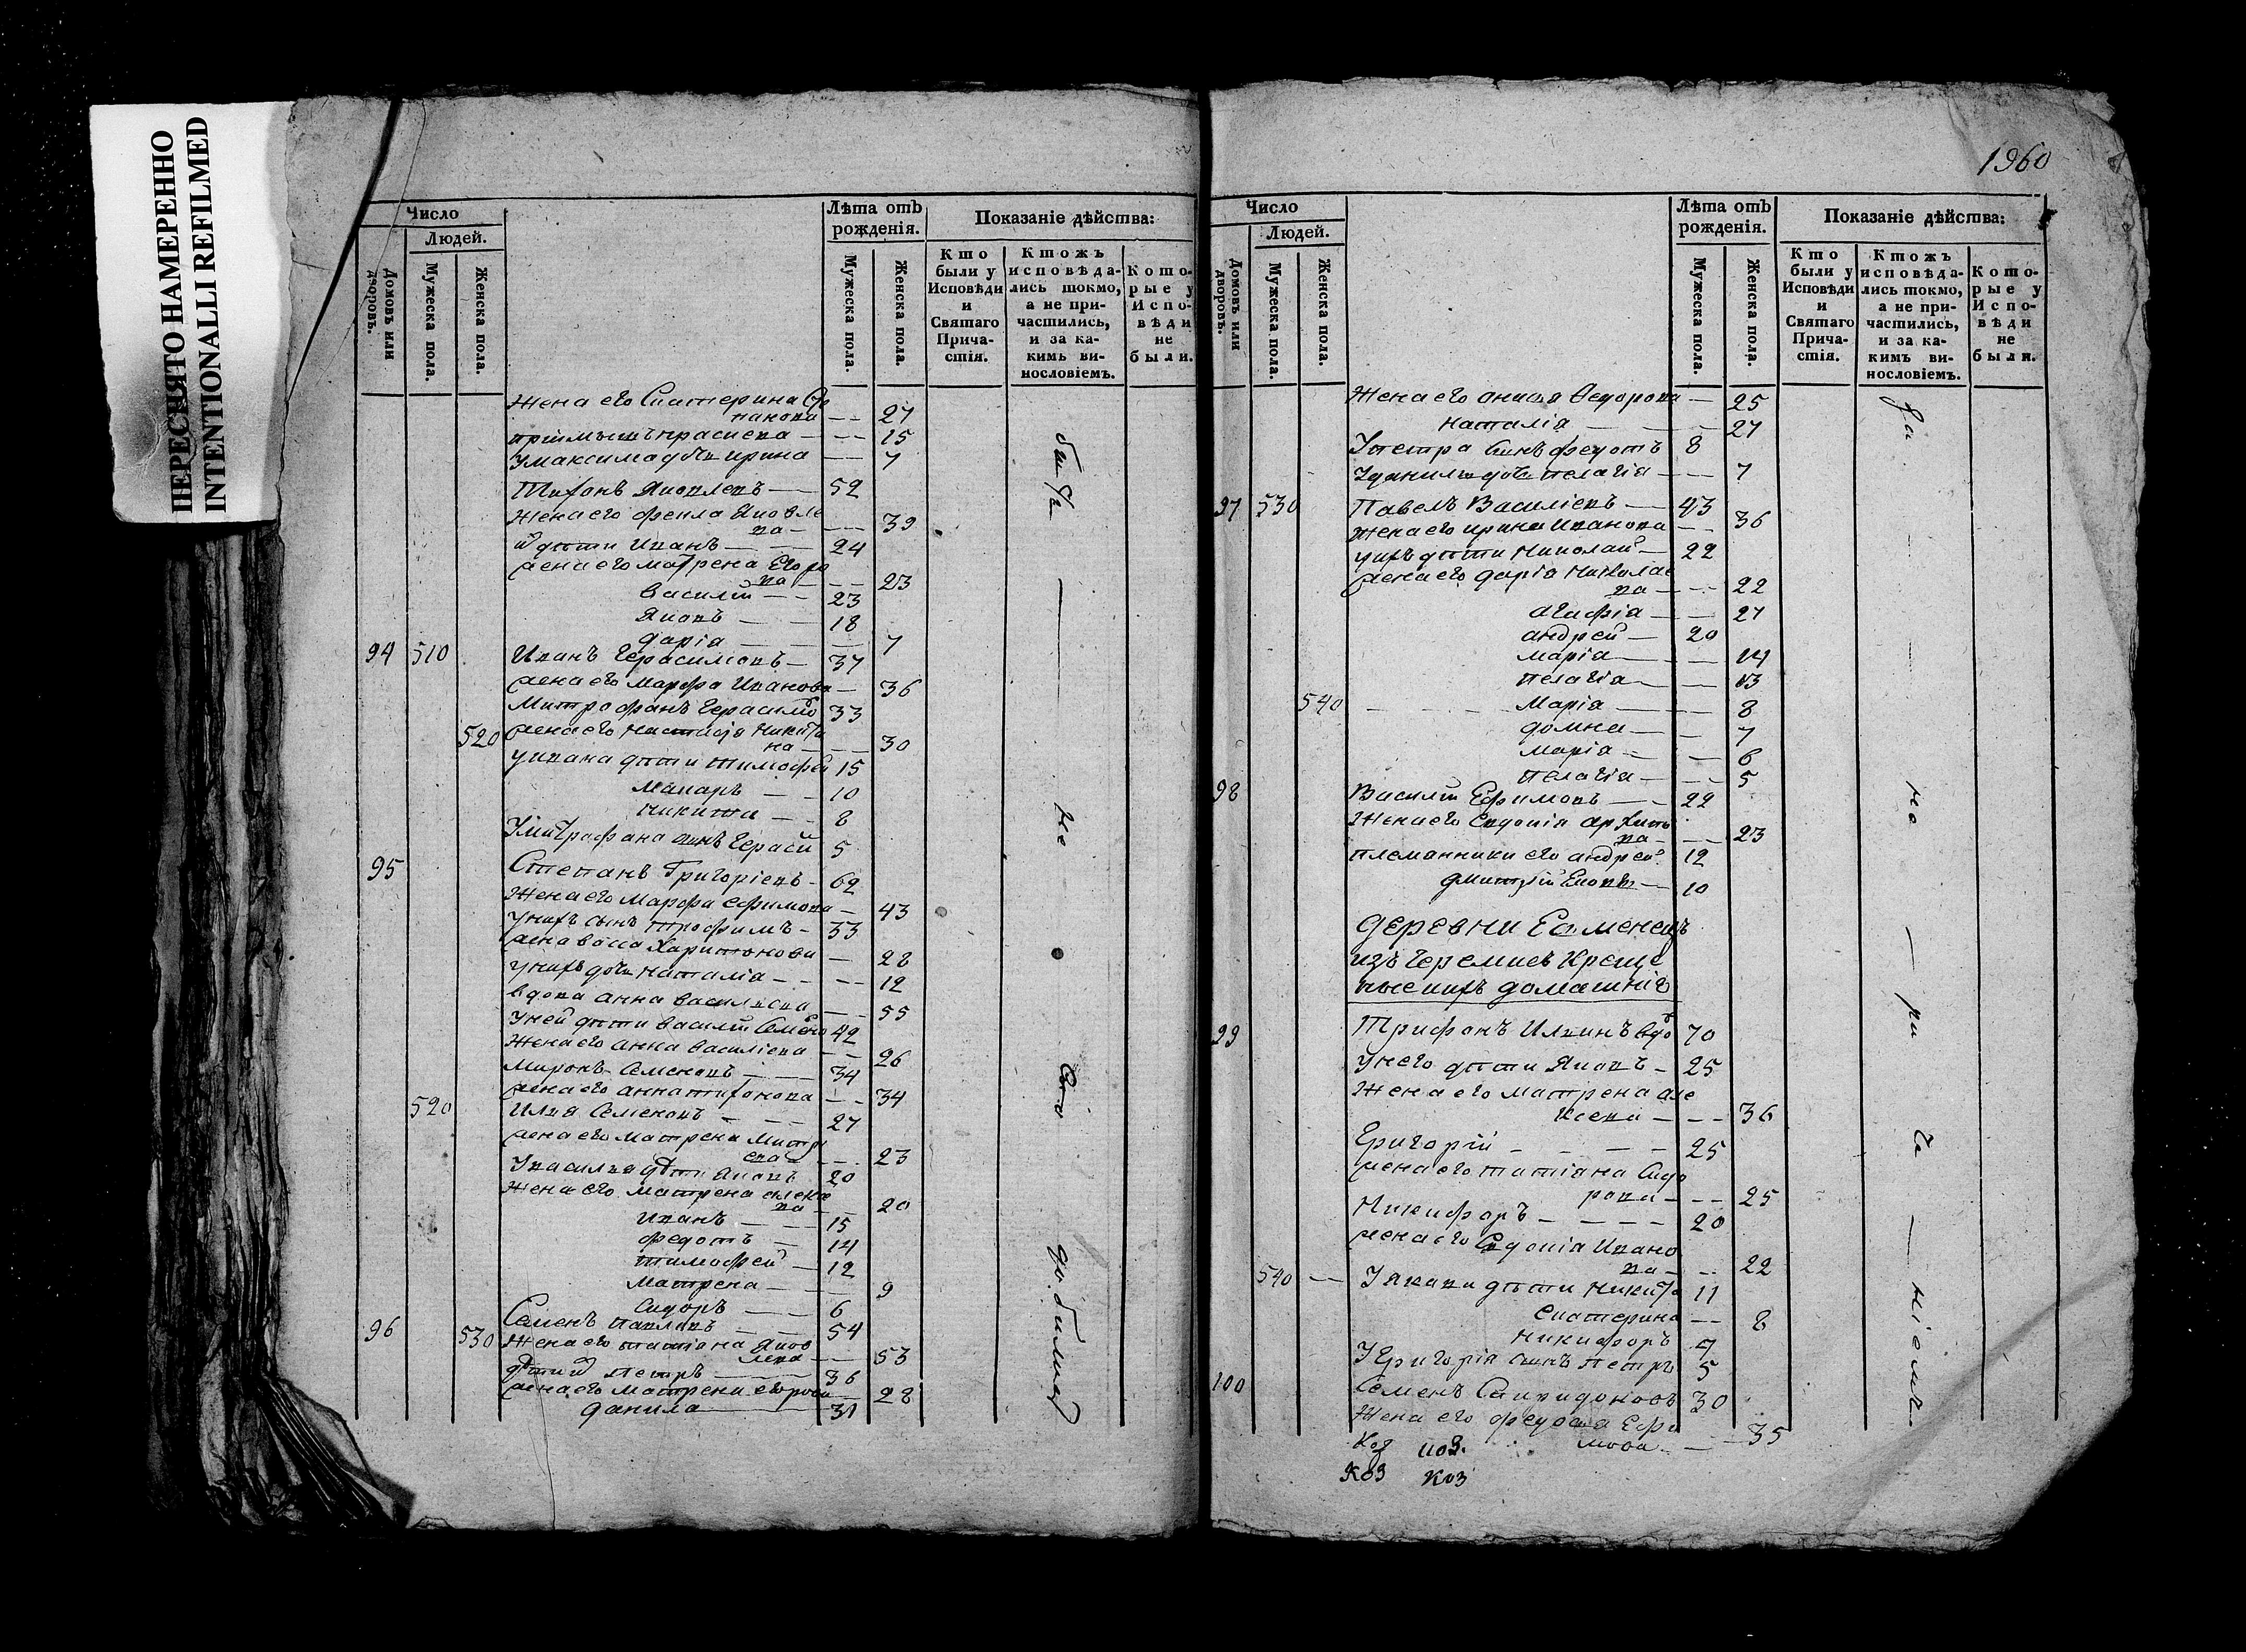 ПЕРЕСНЯТО НАМЕРЕННО
INTENTIONALLI REFILMED
Число
Людей.
Домовъ или дворовъ.
Мужеска пола.
Женска пола.
Лѣта отъ рожденія.
Мужеска пола.
Женска пола.
Показаніе дѣйства:
Кто были у Исповѣди и Святаго Причастія.
Ктожъ исповѣдались токмо, а не причастились, и за какимъ винословіемъ.
Которые у Исповѣди не были.
Жена его Екатерина
панова — — 27
— — 15
У максима дочь ирина — — 7
Тихонъ Яковлевъ — 52
Жена его фекла Яковле
ва — — 39
дѣти Иванъ — — 24
жена его матрена Егоро
ва — — 23
Василій — — 23
Яковъ — — 18
дарія — — 7
94 510 Иванъ Герасимовъ — 37
жена его Марфа Иванова — 36
Митрофанъ Герасимо 33
520 жена его Настасія Никити
на — — 30
у ивана дѣти тимофей 15
Макаръ — — 10
Никита — — 8
У митрафана сынъ Гераси 5
95 Степанъ Григоріевъ — 62
Жена его Марфа ефимова — 43
У нихъ сынъ трофимъ — 33
жена васса Харитонова — 28
У нихъ дочь наталіа — — 12
вдова анна васильева — 55
У ней дѣти василій Семено 42
Жена его анна василіева — — 26
Миронъ Семеновъ — — 34
жена его анна тихонова — — 34
520 Илья Семеновъ — — 27
жена его матрена Митр
ева — 23
У василья дѣти Яковъ 20
Жена его Матрена
ва — 20
Иванъ — — 15
федотъ — 14
тимофей — 12
Матрена — — 9
Сидоръ — — 6
96 Семенъ Павловъ — — 54
530 Жена его татіана Яков
лева — 53
дѣти Петръ — 36
жена его матрена егорова 28
данила — 31
не
было
1960
Число
Людей.
Домовъ или дворовъ.
Мужеска пола.
Женска пола.
Лѣта отъ рожденія.
Мужеска пола.
Женска пола.
Показаніе дѣйства:
Кто были у Исповѣди и Святаго Причастія.
Ктожъ исповѣдались токмо, а не причастились, и за какимъ винословіемъ.
Которые у Исповѣди не были.
Жена его анисья Ѳедорова — 25
наталіа — — 27
У петра сынъ федотъ 8
У данилы дочь пелагіа — — 7
97 530 Павелъ Василіевъ — 43
жена его ирина Иванова — — 36
у нихъ дѣти Николай — 22
жена его дарія Николае
ва — — 22
Агафія — — 27
андрей — 20
марія — — 14
пелагіа — — 13
540 — — — Марія — — 8
домна — — 7
марія — — 6
пелагіа — — 5
98 Василій Ефимовъ — — 22
Жена его Евдокія Архипо
ва — — 23
племянники его андрей 12
дмитрій — 10
деревни Еаменецъ
изъ Черемисъ Креще
ные ихъ домашніе
99 Трифонъ Илинъ вдо 70
У него дѣти Яковъ — 25
Жена его матрена але
ксева — — — 36
Григорій — — — — 25
жена его татіана Сидо
рова — — — 25
Никифоръ — — — — 20
жена его Евдокія Ивано
ва — — 22
540 — У Якова дѣти Никита 11
Екатерина — — 8
Никифоръ 7
У Григорія сынъ петръ 5
100 Семенъ Спиридоновъ 30
Жена его федосья Ефи
мова — — 35
За — — не — ри — ча — ніемъ.
Коз
Коз Коз